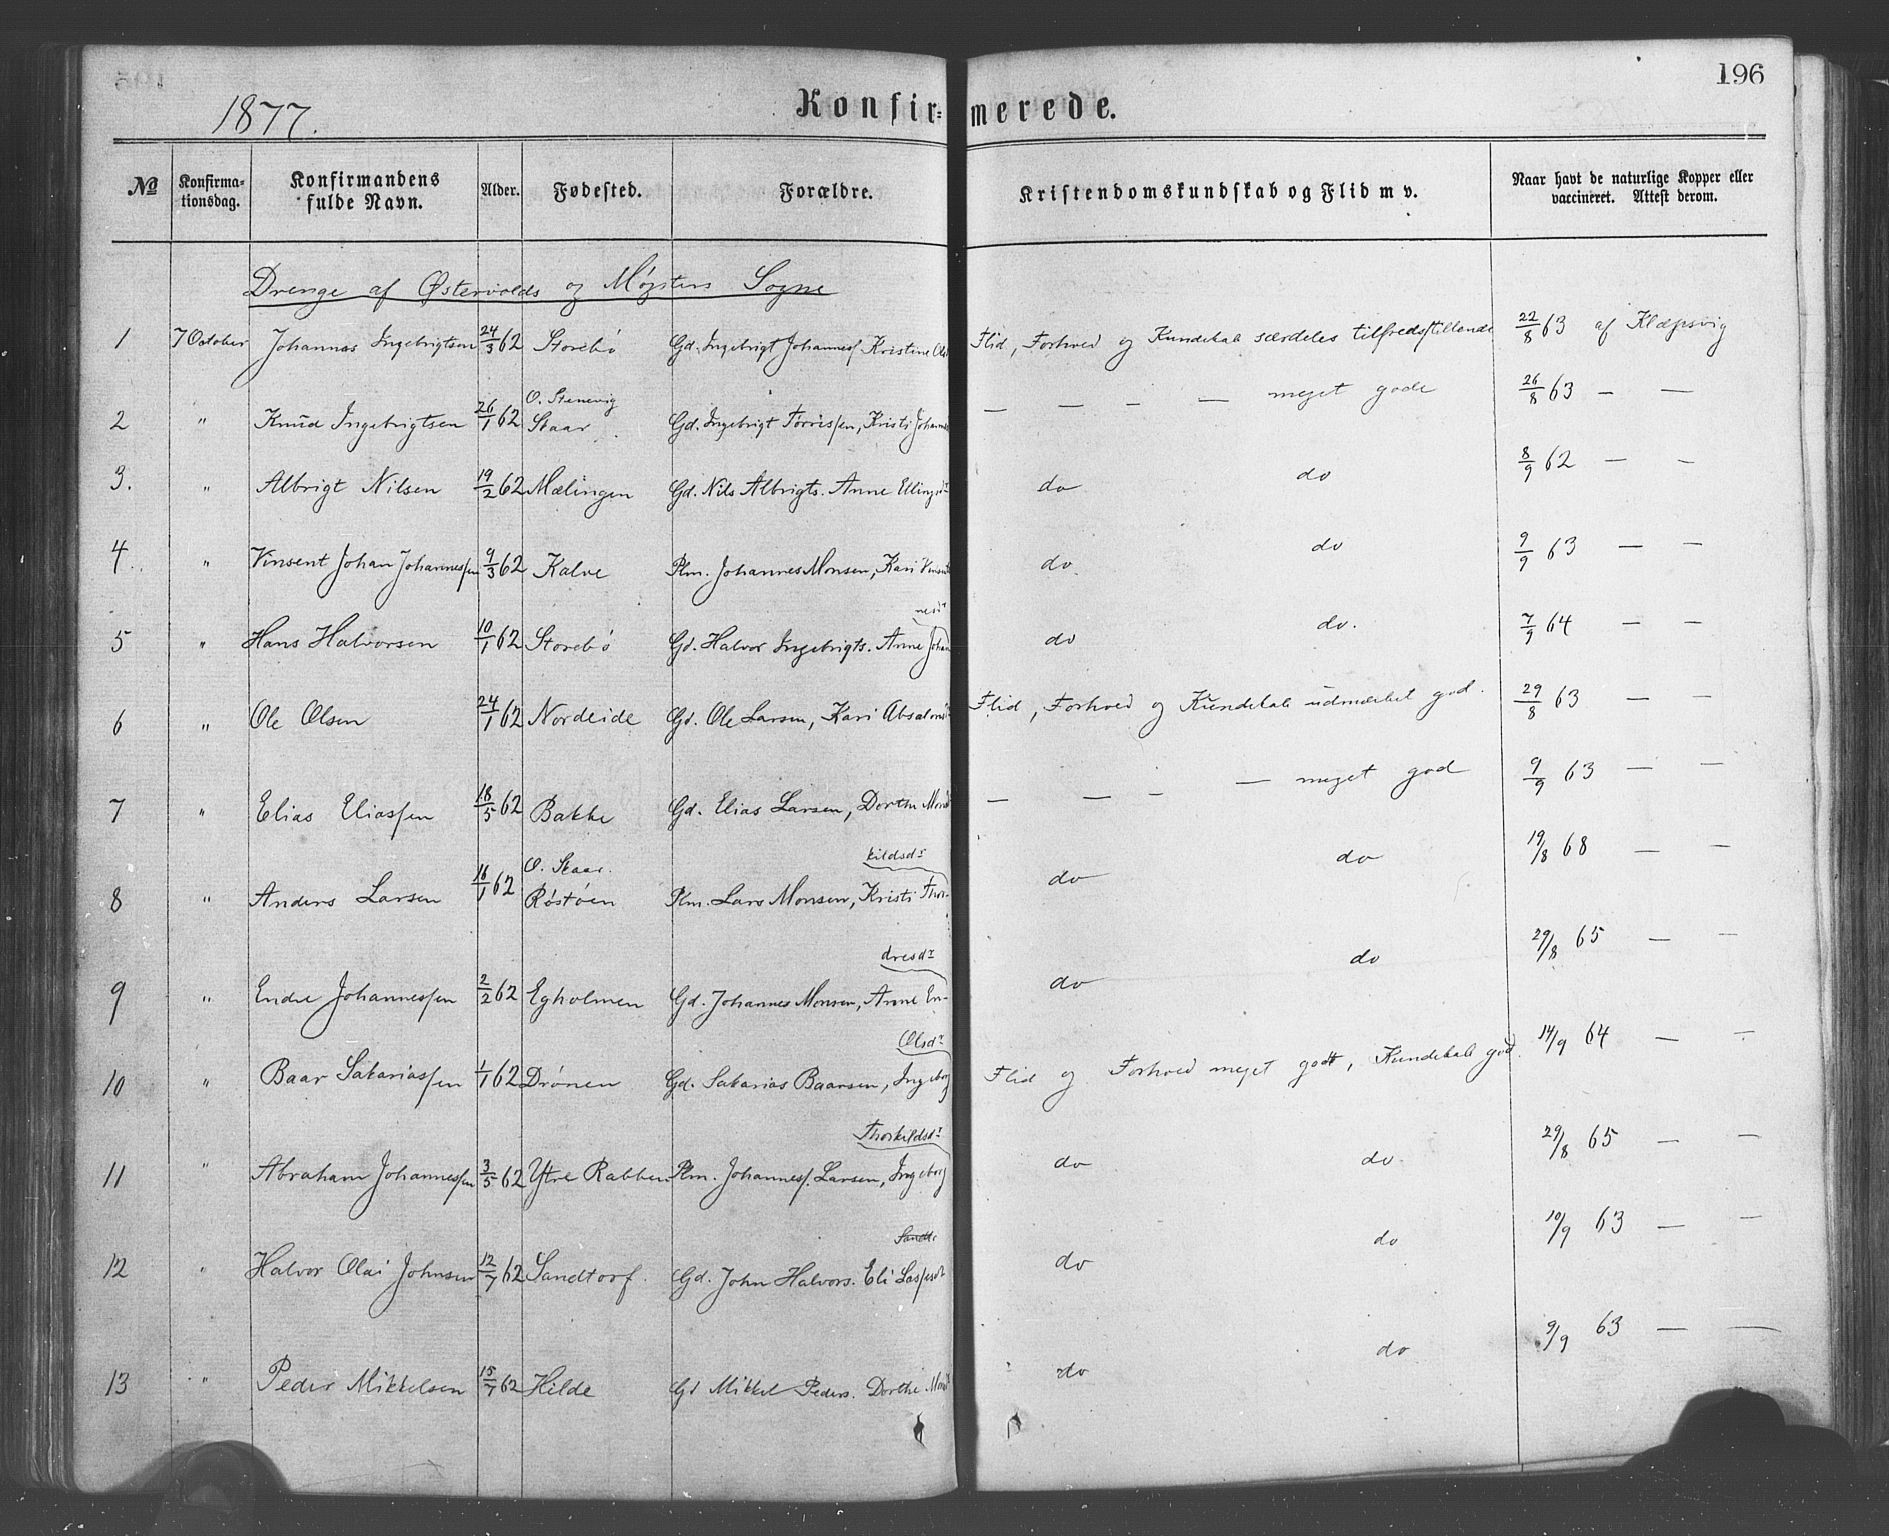 196
1877.
Konfir- merede.
No Konfirma-tionsdag. Konfirmandens fulde Navn. Alder. Fødested. Forældre. Kristendomskundskab og Flid m v. Naar havt de naturlige Kopper eller vaccineret. Attest derom.
Drenge af Østervolds og Møgsters Sogne
1 7 October Johannes Ingebrigtsen 24/3 62 Storebø Gd. Ingebrigt Johanness. Kristine Flid, Forhold og Kundskab særdeles tilfredsstillende 22/8 63 af Klæpsvig
2 " Knud Ingebrigtsen 26/1 62 O. Stenevig Skaar Gd. Ingebrigt Tørrissen, Kristi Johannes — — — — meget gode 26/8 63 — —
3. " Albrigt Nilsen 19/2 62 Mælingen Gd. Nils Albrigts. Anne Ellingsdr do do 8/9 62 — —
4. " Vinsent Johan Johannessen 9/3 62 Kalve Plm. Johannes Monsen, Kari do do 9/9 63 — —
5 " Hans Halvorsen 10/1 62 Storebø Gd. Halvor Ingebrigts. Anne Johannesdr do do. 7/9 64 — —
6 " Ole Olsen 24/1 62 Nordeide Gd. Ole Larsen, Kari Absalons Flid, Forhold og Kundskab udmærket god. 29/8 63 — —
7 " Elias Eliassen 18/5 62 Bakke Gd. Elias Larsen, Dorthe — — — — meget god 9/9 63 — —
8 " Anders Larsen 16/1 62 O. Skaar. Røstøen Plm. Lars Monsen, Kristi Thorkildsdr do do 19/8 68 — —
9 " Endre Johannessen 2/2 62 Egholmen Gd. Johannes Monsen, Anne Endresdr do do 29/8 65 — —
10 " Baar Sakariassen 1/1 62 Drönen Gd. Sakarias Baarsen, Ingeborg Olsdr Flid og Forhold meget godt, Kundskab god. 14/9 64 — —
11 " Abraham Johannessen 3/5 62 Ytre Rabben Plm. Johanness. Larsen, Ingeborg Thorkildsdr do do 29/8 65 — —
12 " Halvor Olai Johnsen 12/7 62 Sandtorf. Gd. John Halvors. Eli do do 10/9 63 — —
13 " Peder Mikkelsen 15/7 62 Hilde Gd Mikkel Peders. Dorthe do do 9/9 63 — —